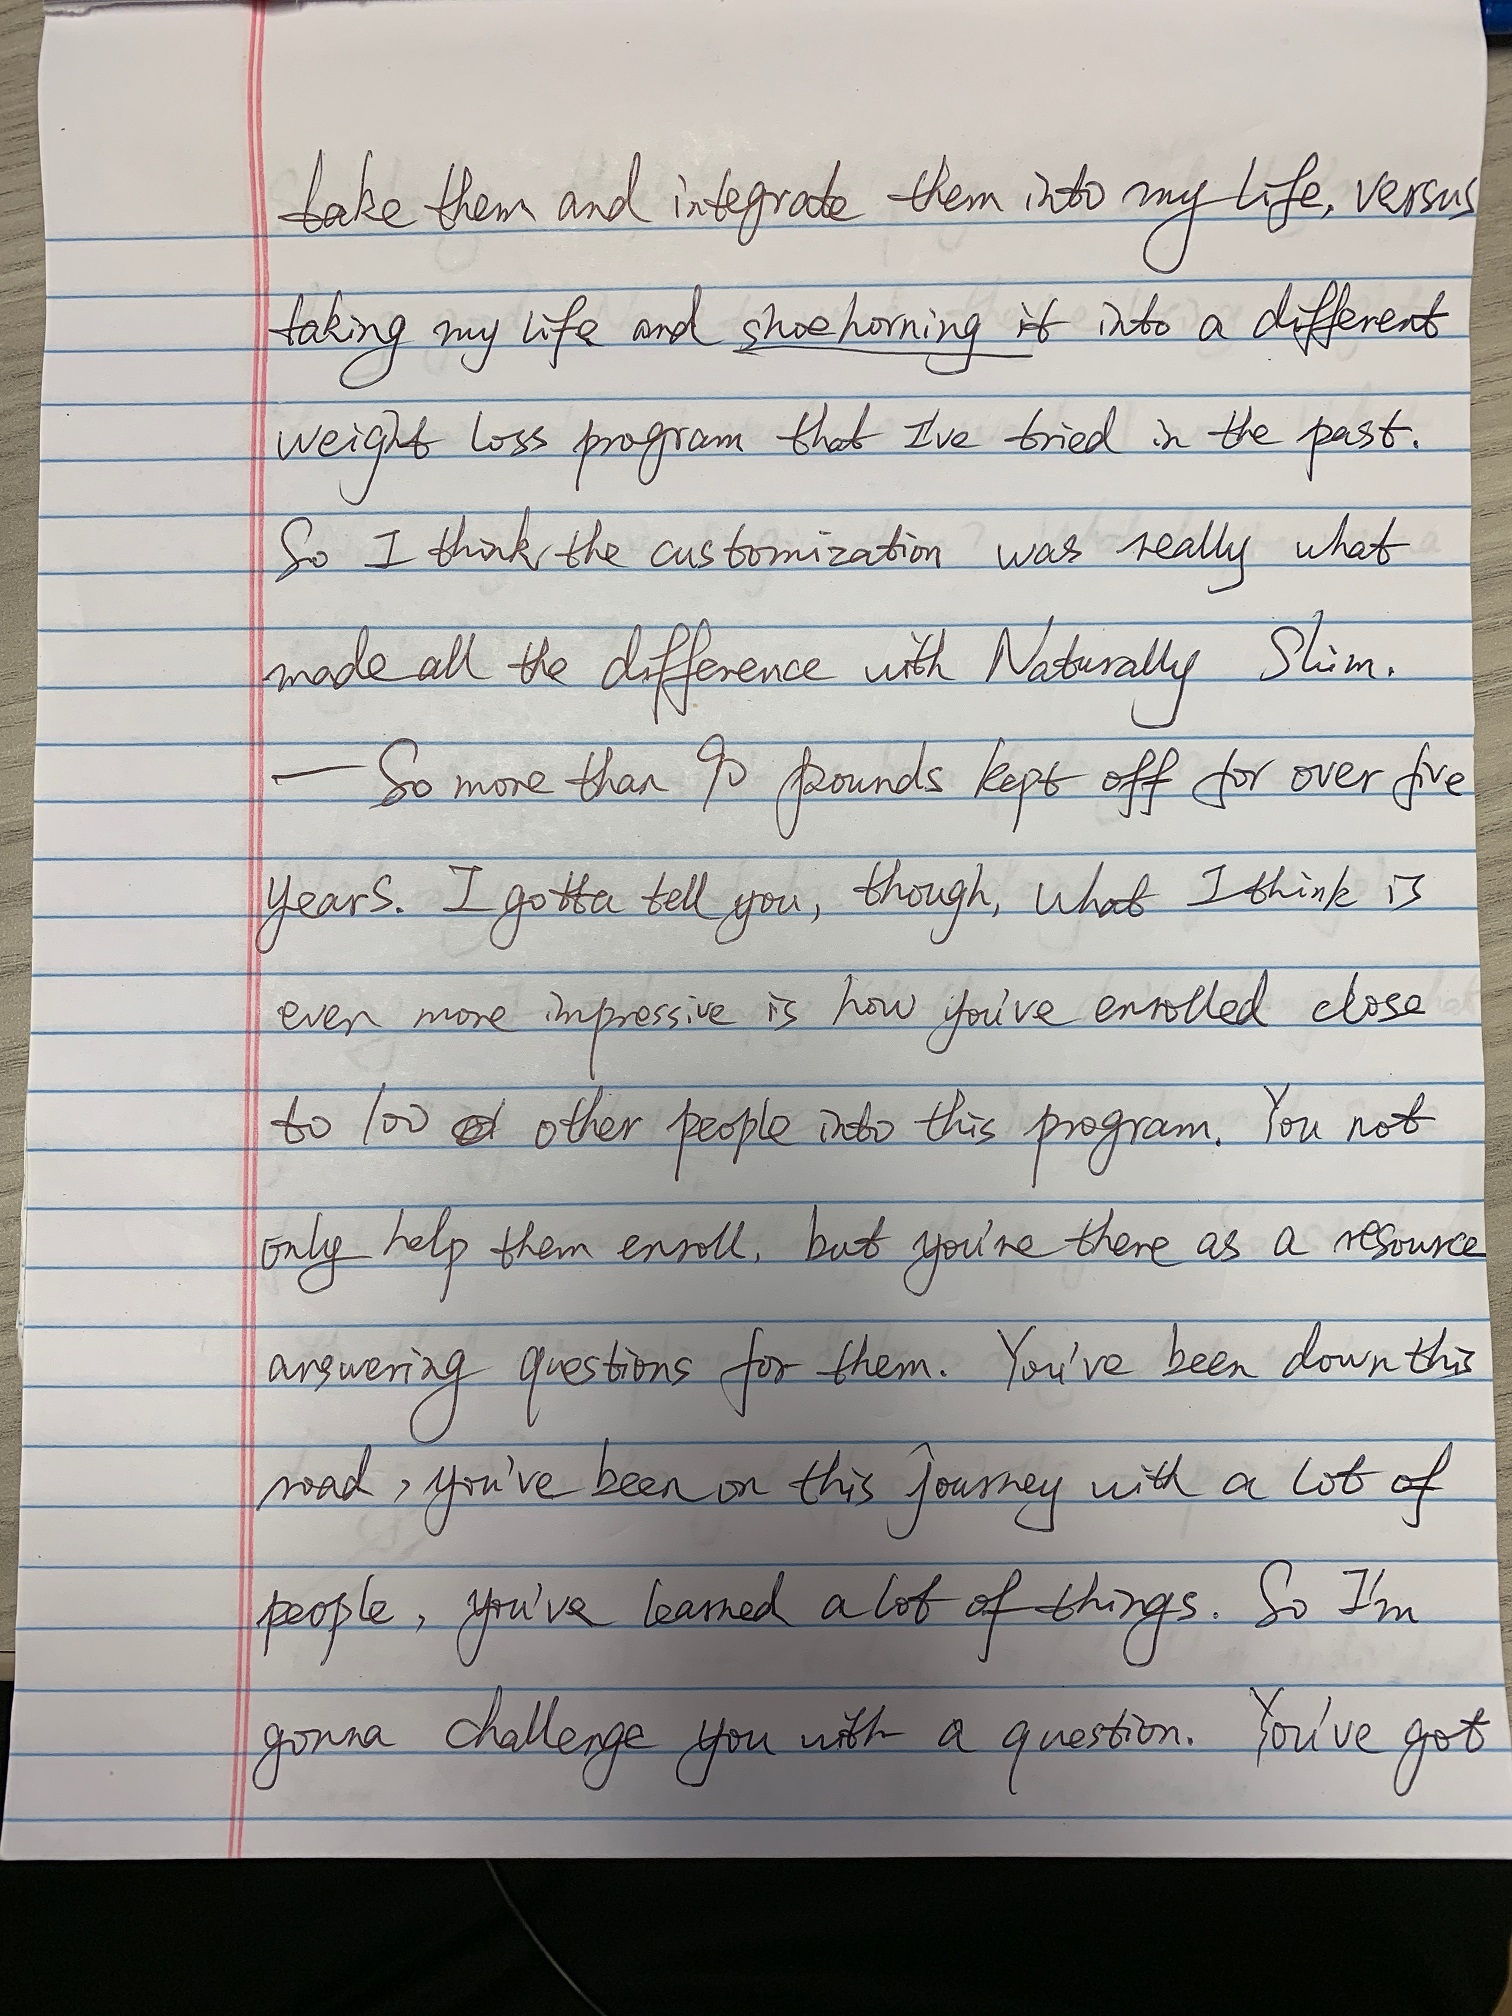 take them and integrate them into my life, versus
taking my life and shoehorning it into a different
weight loss program that I've tried in the past.
So I think the customization was really what
made all the difference with Naturally Slim.
— So more than 90 pounds kept off for over five
years. I gotta tell you, though, what I think is
even more impressive is how you've enrolled close
to 100 other people into this program. You not
only help them enroll, but you're there as a resource
answering questions for them. You've been down this
road, you've been on this journey with a lot of
people, you've learned a lot of things. So I'm
gonna challenge you with a question. You've got